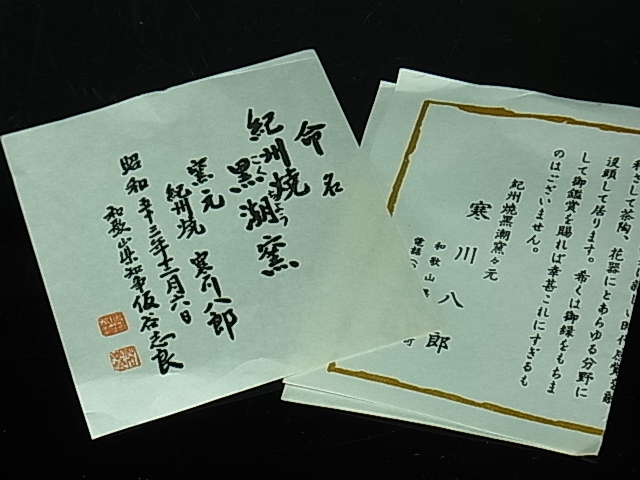 命名
紀州焼
黒潮窯
こくちょう
窯元
紀州焼 寒川八郎
昭和五十二年十二月六日
和歌山県知事仮谷志良
料として茶陶、花器にとあらゆる分野に
没頭して居ります。希くは御縁をもちま
して御鑑賞を賜れば幸甚これにすぎるも
のはございません。
紀州焼黒潮窯々元
寒川八郎
和歌山
電話